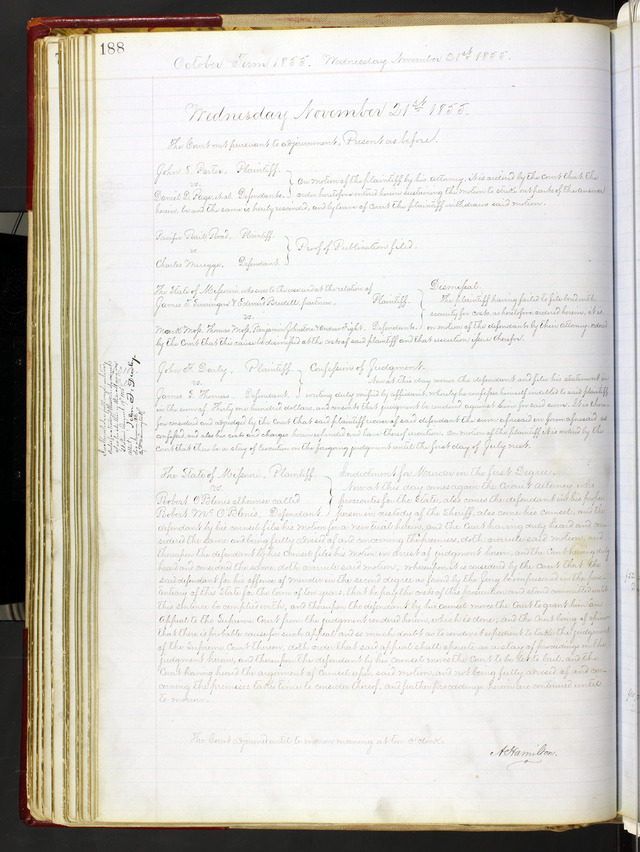 188
October Term 1855. Wednesday November 21st 1855.
Wednesday November 21st 1855.
The Court met pursuant to adjournment, Present as before.
John S. Porter, Plaintiff.
vs.
Daniel D. Page et al. Defendants.
On motion of the plaintiff by his attorney, it is ordered by the Court that the
order heretofore entered herein sustaining the motion to strike out parts of the answer
herein, be and the same is hereby rescinded, and by leave of Court the plaintiff withdraws said motion.
Pacific Rail Road, Plaintiff.
vs.
Charles Defendant.
Proof of Publication filed.
The State of Missouri who sues to the use and at the relation of
James & Edward partners, Plaintiff.
vs.
Mark Moss, Thomas Moss, Benjamin Johnston & Defendants.
Dismissal.
The plaintiff having failed to file bond with
security for costs, as heretofore ordered herein, it is
on motion of the defendants by their attorney, ordered
by the Court that this cause be dismissed at the costs of said plaintiff and that execution issue therefor.
John F. Darby, Plaintiff.
vs.
James S. Thomas. Defendant.
Confession of Judgment.
Now at this day comes the defendant and files his statement in
writing duly verified by affidavit, whereby he confesses himself indebted to said plaintiff
in the sum of Thirty nine hundred dollars, and consents that judgment be rendered against him for said sum. It is there-
fore considered and adjudged by the Court that said plaintiff recover of said defendant the sum aforesaid in form aforesaid so
confessed, and also his costs and charges herein expended and have thereof execution. On motion of the plaintiff it is ordered by the
Court that there be a stay of execution on the foregoing judgment until the first day of July next.
John F. Darby
The State of Missouri, Plaintiff.
vs.
Robert O'Blenis otherwise called
Robert McO'Blenis, Defendant.
Indictment for Murder in the First Degree.
Now at this day comes again the Circuit Attorney who
prosecutes for the State, also comes the defendant in his proper
person in custody of the Sheriff, also comes his counsel, and the
defendant by his counsel files his motion for a new trial herein, and the Court having duly heard and con-
sidered the same and being fully advised of and concerning the premises, doth overrule said motion, and
thereupon the defendant by his counsel files his motion in arrest of judgment herein, and the Court having duly
heard and considered the same, doth overrule said motion, whereupon it is considered by the Court that the
said defendant for his offence of murder in the second degree as found by the Jury be imprisoned in the peni-
tentiary of this State for the term of ten years, that he pay the costs of this prosecution and stand committed until
this sentence be complied with, and thereupon the defendant by his counsel moves the Court to grant him an
Appeal to the Supreme Court from the judgment rendered herein, which is done; and the Court being of opinion
that there is probable cause for such appeal and so much doubt as to render it expedient to take the judgment
of the Supreme Court thereon, doth order that said appeal shall operate as a stay of proceedings on the
judgment herein, and thereupon the defendant by his counsel moves the Court to be let to bail, and the
Court having heard the argument of Counsel upon said motion, and not being fully advised of and con-
cerning the premises takes time to consider thereof, and further proceedings herein are continued until
to morrow.
The Court adjourned until to morrow morning at ten o'clock.
A. Hamilton.